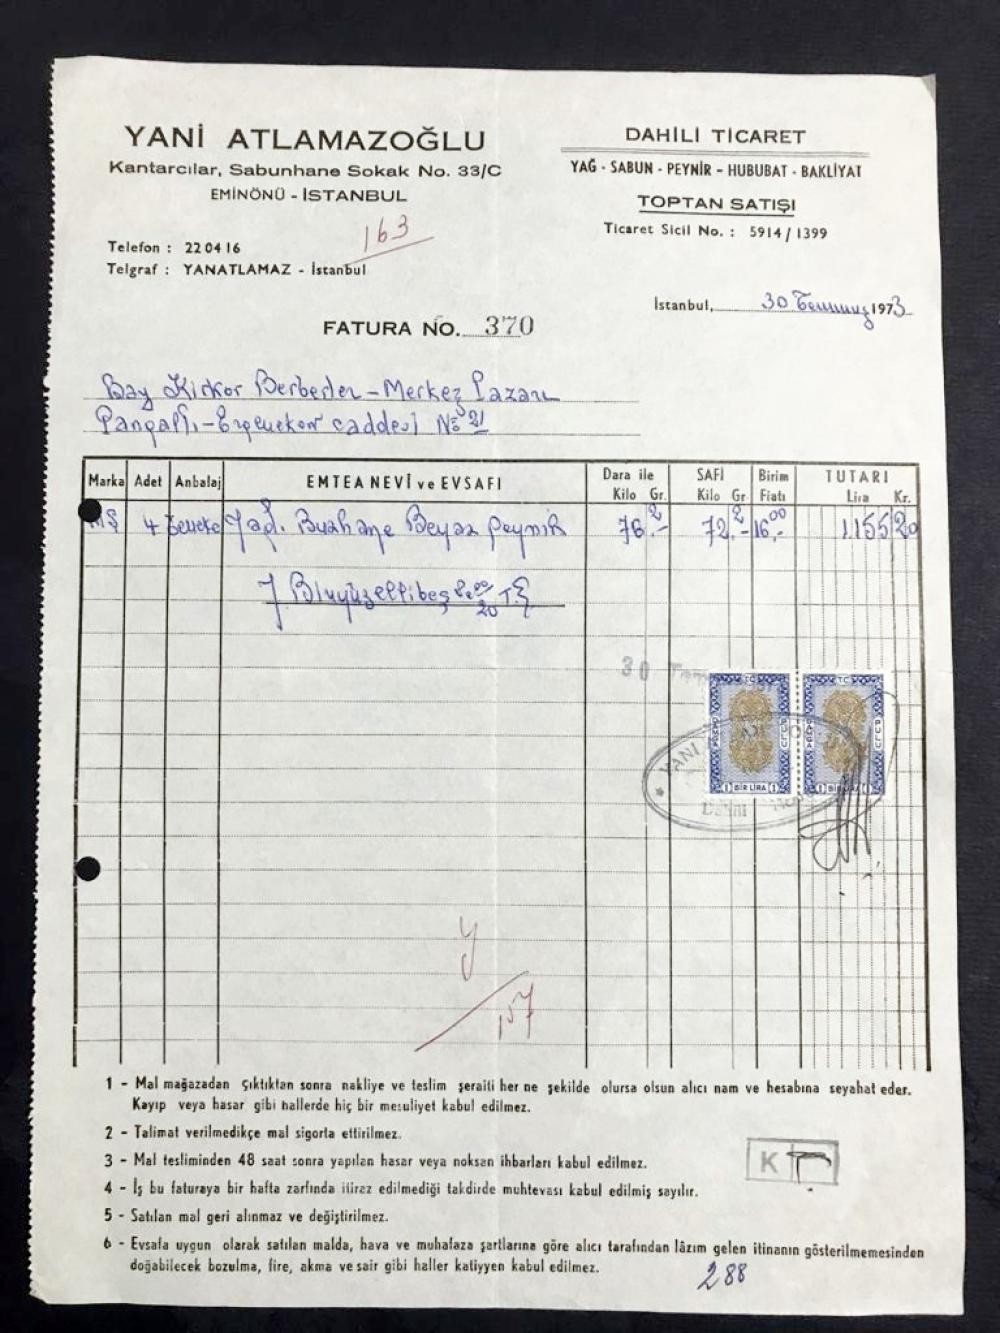 YANİ ATLAMAZOĞLU
Kantarcılar, Sabunhane Sokak No. 33/C
EMİNÖNÜ - İSTANBUL
DAHİLİ TİCARET
YAĞ - SABUN - PEYNİR - HUBUBAT - BAKLİYAT
TOPTAN SATIŞI
Ticaret Sicil No. : 5914 / 1399
163
Telefon : 22 04 16
Telgraf : YANATLAMAZ - İstanbul
İstanbul, 30 Temmuz 1973
FATURA NO. 370
Bay Kirkor Berberler - Merkez Pazarı
Pangaltı - Ergenekon caddesi No 21
Marka Adet Anbalaj EMTEA NEVİ ve EVSAFI Dara ile Kilo Gr. SAFİ Kilo Gr Birim Fiatı TUTARI Lira Kr.
4 Teneke Yağ. Buzhane Beyaz Peynir 76.- 72.- 16.00 1.155 20
Binyüzellibeş 20
30
TC TC
DAMGA PULU DAMGA PULU
1 BİR LİRA 1 1 BİR LİRA 1
YANİ
Dahili
157
1 - Mal mağazadan çıktıktan sonra nakliye ve teslim şeraiti her ne şekilde olursa olsun alıcı nam ve hesabına seyahat eder.
Kayıp veya hasar gibi hallerde hiç bir mesuliyet kabul edilmez.
2 - Talimat verilmedikçe mal sigorta ettirilmez.
3 - Mal tesliminden 48 saat sonra yapılan hasar veya noksan ihbarları kabul edilmez.
4 - İş bu faturaya bir hafta zarfında itiraz edilmediği takdirde muhtevası kabul edilmiş sayılır.
5 - Satılan mal geri alınmaz ve değiştirilmez.
6 - Evsafa uygun olarak satılan malda, hava ve muhafaza şartlarına göre alıcı tarafından lâzım gelen itinanın gösterilmemesinden
doğabilecek bozulma, fire, akma ve sair gibi haller katiyyen kabul edilmez.
K
288